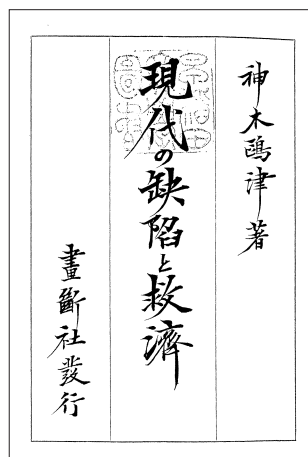 神木鷗津著
現代の缺陷と救濟
畫斷社發行